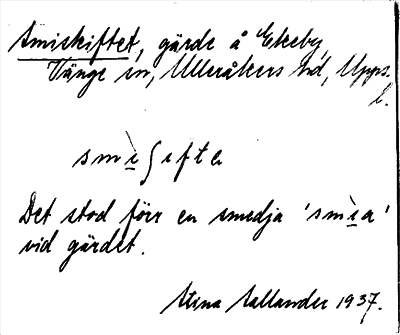 Smiskiftet, gärde å Ekeby,
Vänge sn, Ulleråkers hd, Upps.
l.
smìʃifte
Det stod förr en smedja 'smìa'
vid gärdet.
Stina Sallander 1937.